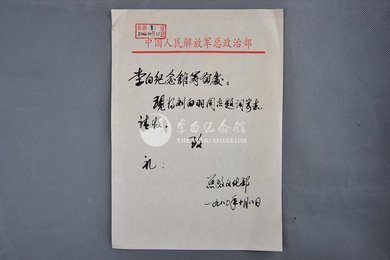 中国人民解放军总政治部
李白纪念館筹備處：
现将刘白羽同志题词寄去
请收。
李白纪念馆
THE LIBAI MUSEUM
致
礼！
总政文化部
一九八〇年十月八日